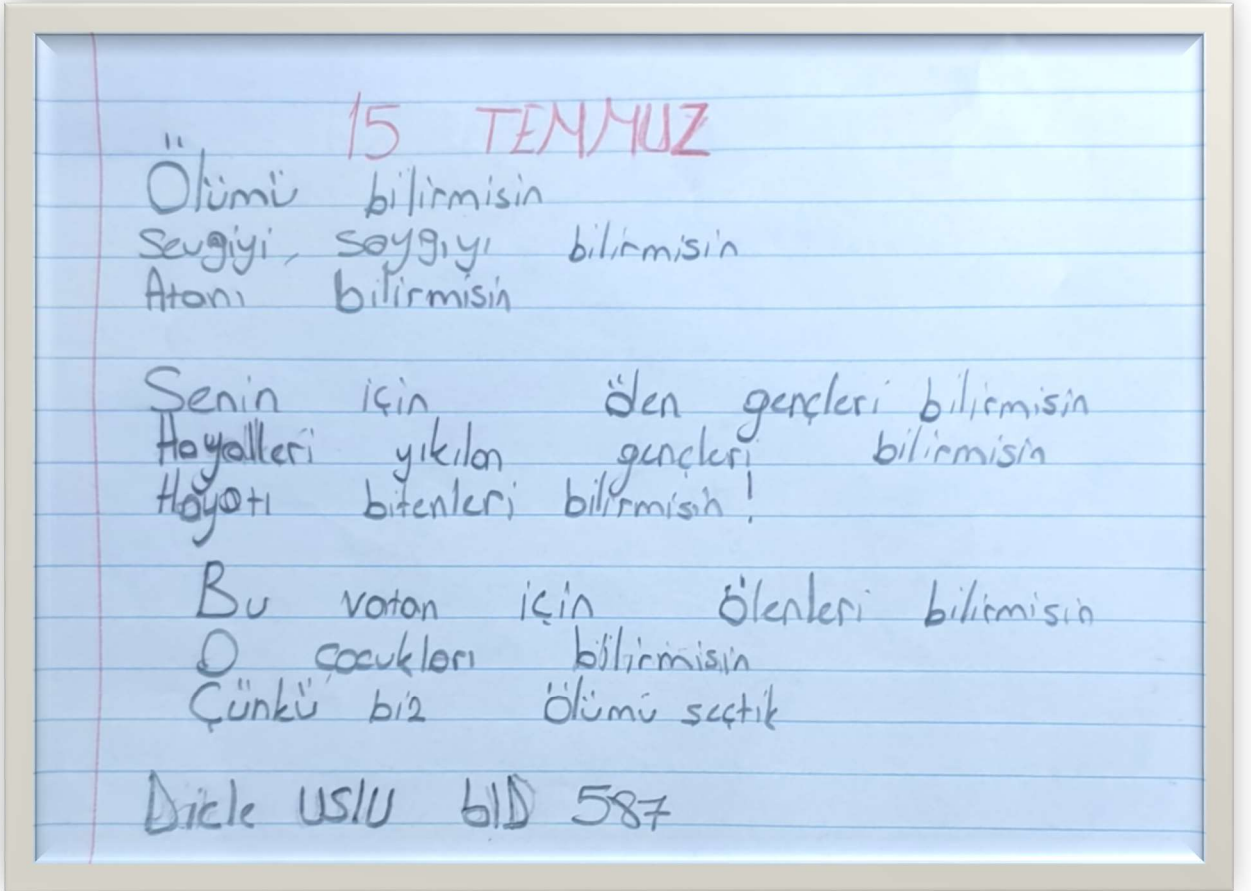 15 TEMMUZ
Ölümü bilirmisin
Sevgiyi, saygıyı bilirmisin
Atanı bilirmisin
Senin için ölen gençleri bilirmisin
Hayalleri yıkılan gençleri bilirmisin
Hayatı bitenleri bilirmisin!
Bu vatan için ölenleri bilirmisin
O çocukları bilirmisin
Çünkü biz ölümü seçtik
Dicle USLU 6/D 587